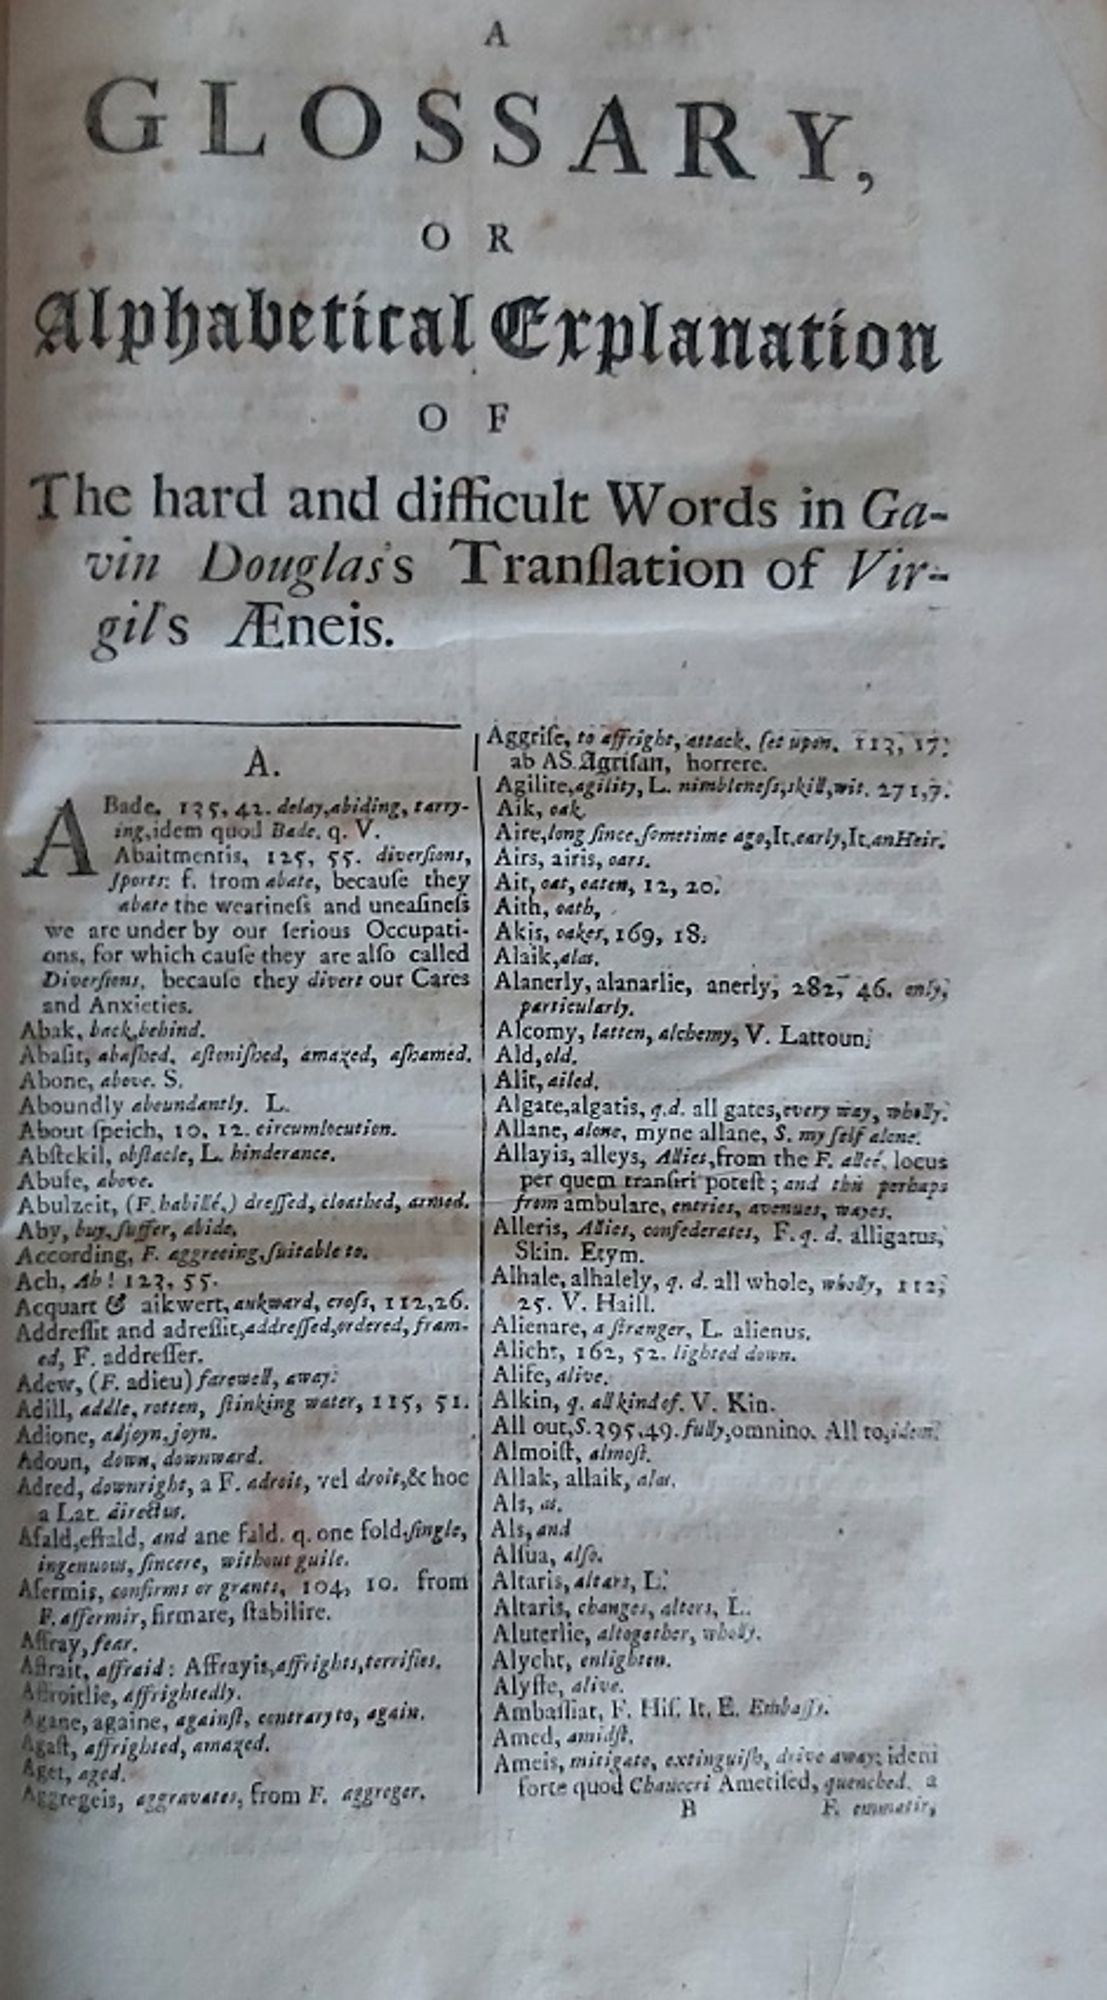 A
GLOSSARY,
OR
Alphabetical Explanation
OF
The hard and difficult Words in Ga-
vin Douglas's Tranſlation of Vir-
gil's Æneis.
A.
ABade, 135, 42. delay, abiding, tarry-
ing, idem quod Bade. q. V.
Abaitmentis, 125, 55. diverſions,
ſports: f. from abate, becauſe they
abate the wearineſs and uneaſineſs
we are under by our ſerious Occupati-
ons, for which cauſe they are alſo called
Diverſions, becauſe they divert our Cares
and Anxieties.
Abak, back, behind.
Abaſit, abaſhed, aſtoniſhed, amazed, aſhamed.
Abone, above. S.
Aboundly aboundantly. L.
About ſpeich, 10. 12. circumlocution.
Abſtckil, obſtacle, L. hinderance.
Abufe, above.
Abulzeit, (F. habillé,) dreſſed, cloathed, armed.
Aby, buy, ſuffer, abide.
According, F. aggreeing, ſuitable to.
Ach, Ah! 123, 55.
Acquart & aikwert, aukward, croſs, 112, 26.
Addreſſit and adreſſit, addreſſed, ordered, fram-
ed, F. addreſſer.
Adew, (F. adieu) farewell, away:
Adill, addle, rotten, ſtinking water, 115, 51.
Adione, adjoyn, joyn.
Adoun, down, downward.
Adred, downright, a F. adroit, vel droit, & hoc
a Lat. directus.
Afald, effald, and ane fald. q. one fold, ſingle,
ingenuous, ſincere, without guile.
Afermis, confirms or grants, 104, 10. from
F. affermir, firmare, ſtabilire.
Affray, fear.
Affrait, affraid: Affrayis, affrights, terrifies.
Affroitlie, affrightedly.
Agane, againe, againſt, contrary to, again.
Agaſt, affrighted, amazed.
Aget, aged.
Aggregeis, aggravates, from F. aggreger.
Aggriſe, to affright, attack, ſet upon. 113, 17.
ab AS. Agriſan, horrere.
Agilite, agility, L. nimbleneſs, skill, wit. 271, 7.
Aik, oak.
Aire, long ſince, ſometime ago, It. early, It. an Heir.
Airs, airis, oars.
Ait, oat, oaten, 12, 20.
Aith, oath,
Akis, oakes, 169, 18.
Alaik, alas.
Alanerly, alanarlie, anerly, 282, 46. only,
particularly.
Alcomy, latten, alchemy, V. Lattoun.
Ald, old.
Alit, ailed.
Algate, algatis, q.d. all gates, every way, wholly.
Allane, alone, myne allane, S. my ſelf alone.
Allayis, alleys, Allies, from the F. alleé, locus
per quem tranſiri poteſt; and this perhaps
from ambulare, entries, avenues, wayes.
Alleris, Allies, confederates, F. q. d. alligatus,
Skin. Etym.
Alhale, alhalely, q. d. all whole, wholly, 112,
25. V. Haill.
Alienare, a ſtranger, L. alienus.
Alicht, 162, 52. lighted down.
Alife, alive.
Alkin, q. all kind of. V. Kin.
All out, S. 295, 49. fully, omnino. All to, idem.
Almoiſt, almoſt.
Allak, allaik, alas.
Als, as.
Als, and
Alſua, alſo.
Altaris, altars, L.
Altaris, changes, alters, L.
Aluterlie, altogether, wholly.
Alycht, enlighten.
Alyffe, alive.
Ambaſſiat, F. Hiſ. It. E. Embaſſy.
Amed, amidſt.
Ameis, mitigate, extinguiſh, drive away; idem
forte quod Chauceri Ametiſed, quenched, a
B F. emmatir,